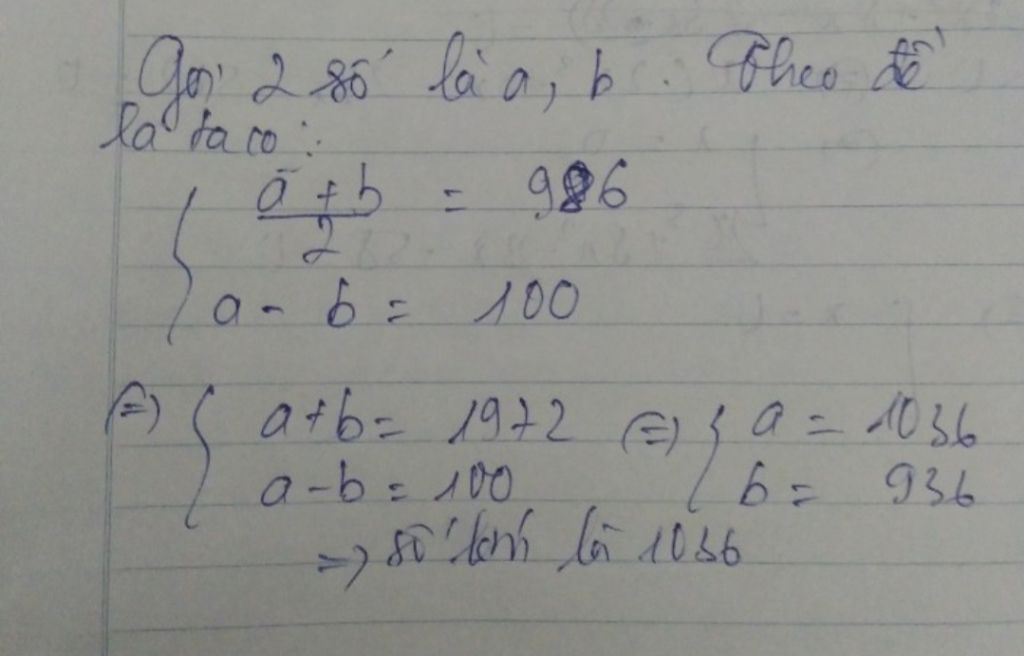 Gọi 2 số là a, b. Theo đề
la ta co:
{ a + b / 2 = 986
a - b = 100
(=) { a+b = 1972 (=) { a = 1036
a-b = 100 b = 936
=> số lớn là 1036